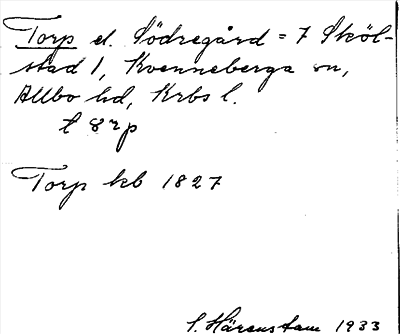 Torp el. Södregård = 7 Sköl-
stad 1, Kvenneberga sn,
Allbo hd, Krbs l.
t ɔrp
Torp kb 1827
S. Härenstam 1933